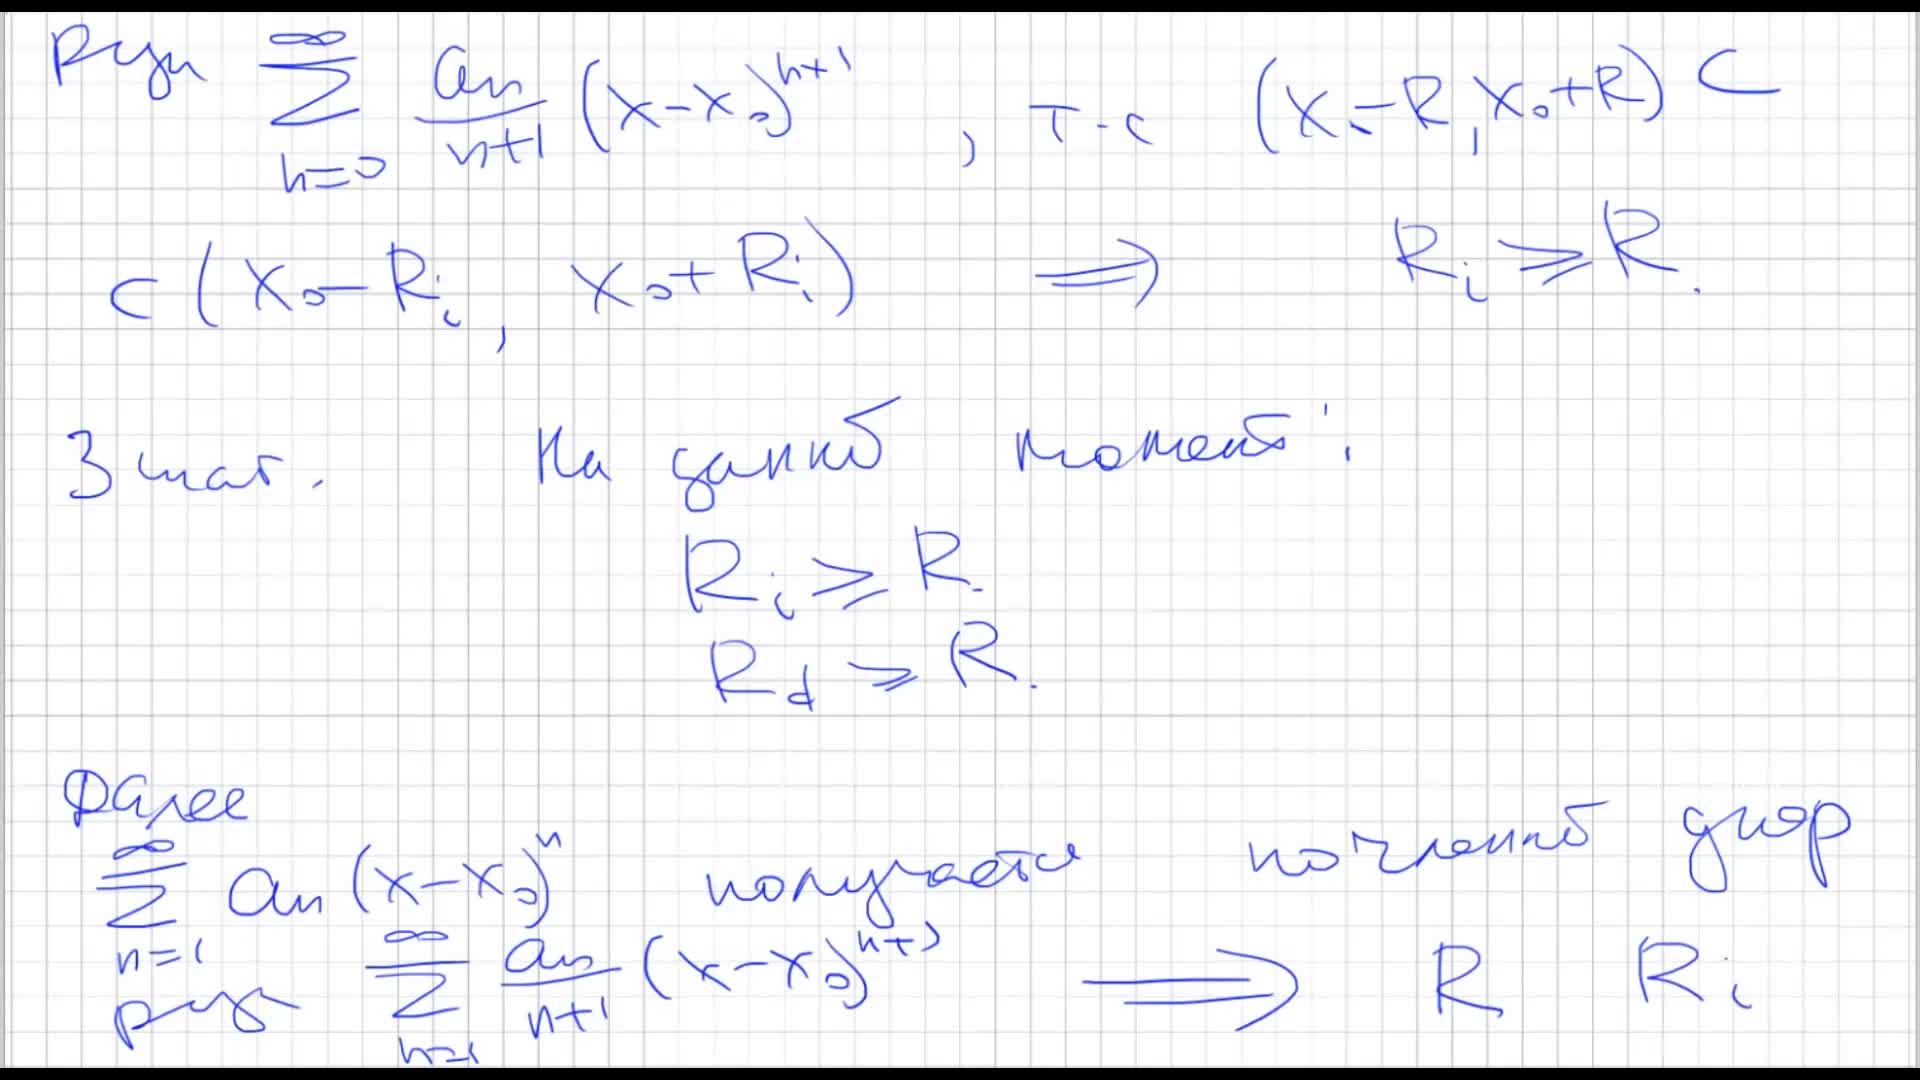 ряда \sum_{n=0}^{\infty} \frac{a_n}{n+1} (x-x_0)^{n+1}, т-с (x_0-R, x_0+R) ⊂
⊂ (x_0-R_i, x_0+R_i) ⟹ R_i ⩾ R.
3 шаг. На данной момент:
R_i ⩾ R.
R_d ⩾ R.
Далее
\sum_{n=1}^{\infty} a_n (x-x_0)^n получается почленной диф
ряда \sum_{n=1}^{\infty} \frac{a_n}{n+1} (x-x_0)^{n+1} ⟹ R R_i